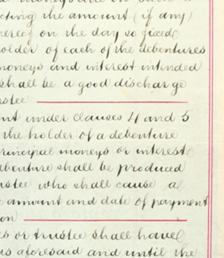 the amount (if any)
thereof on the day so fixed
holder of each of the debentures
moneys and interest intended
shall be a good discharge
trustee
under clauses 4 and 5
the holder of a debenture
principal moneys or interest
debenture shall be produced
trustee who shall cause a
amount and date of payment
on
or trustee shall have
as aforesaid and until the